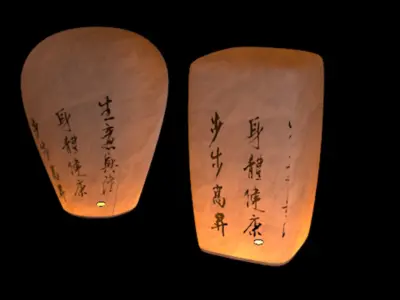 生意興隆
身體健康
步步高昇
身體健康
步步高昇